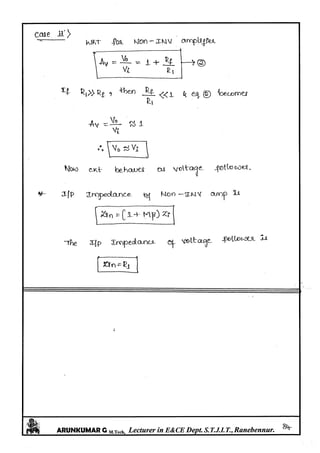 Case ii'>
WKT for Non-INV amplifier
Av = Vo/Vi = 1 + Rf/R1 → ②
If R1 >> Rf, then Rf/R1 << 1 & eq ② becomes
Av = Vo/Vi ≈ 1
∴ Vo ≈ Vi
Now ckt behaves as voltage follower.
* I/P Impedance of Non-INV amp is
Zin = (1 + Mβ) Zi
The I/P Impedance of voltage follower is
Zin = R1
ARUNKUMAR G M.Tech, Lecturer in E&CE Dept. S.T.J.I.T., Ranebennur. 84